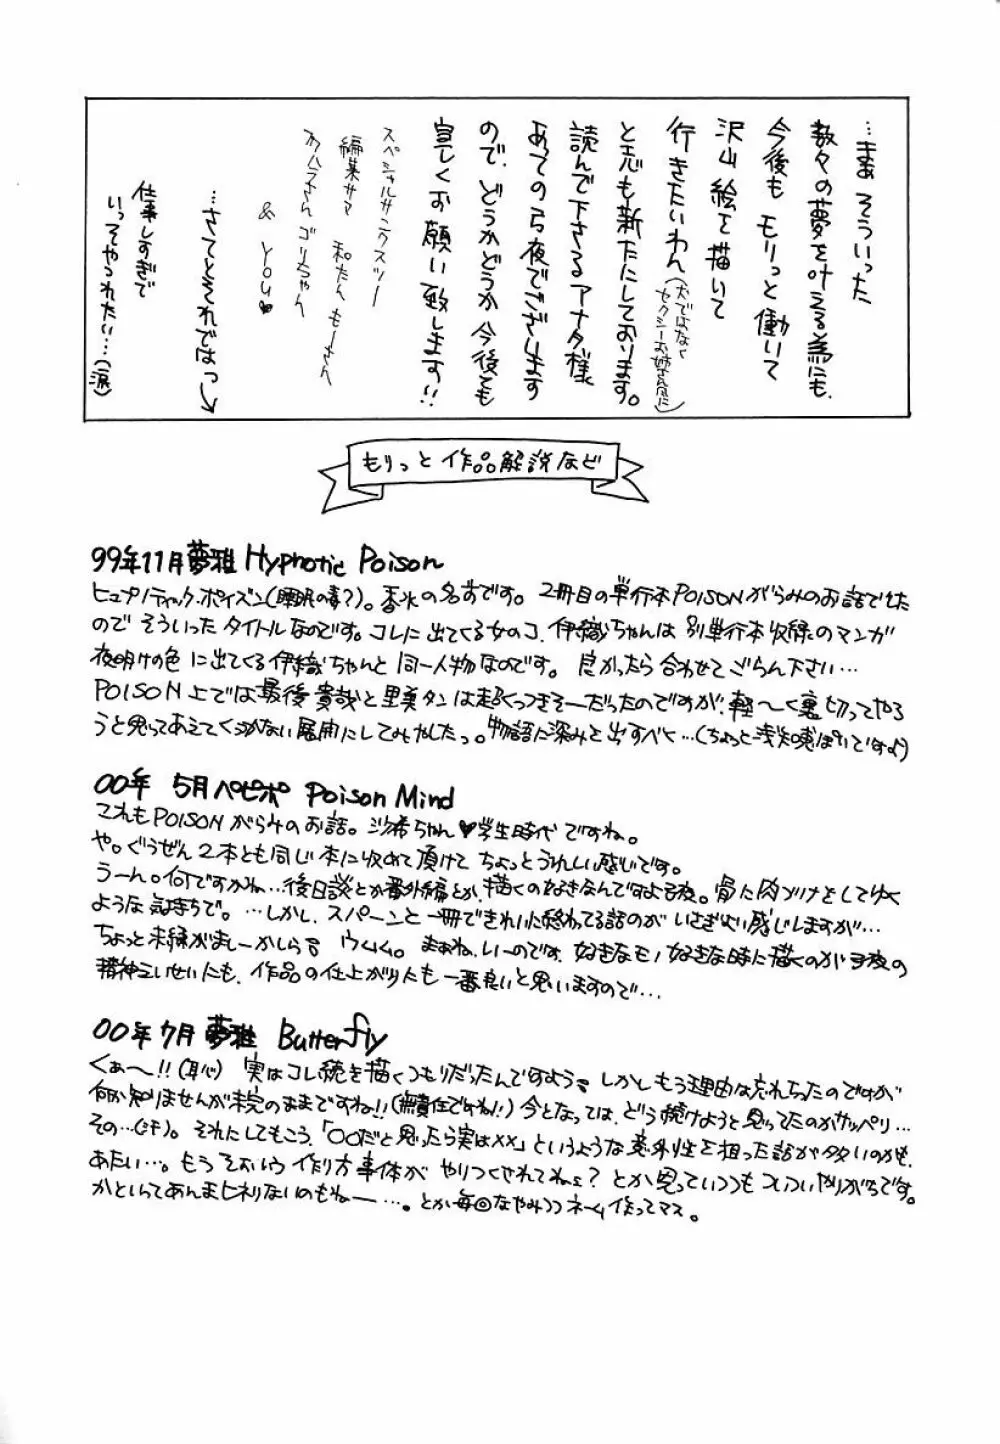 …まぁ そういった
数々の夢を叶える為にも、
今後も モリっと働いて
沢山絵を描いて
行きたいわん(犬ではなくセクシーお姉さん風に)
と志も新たにしております。
読んで下さるアナタ様
あっての弓夜でございます
ので、どうかどうか今後とも
宜しくお願い致します!!
スペシャルサンクスツー
編集サマ 和たん もーさん
ゴリちゃん
& YOU♥
…さてとそれではっ→
仕事しすぎで
いってやつれたい…(涙)
もりっと作品解説など
99年11月夢雅 Hypnotic Poison
ヒュプノティック・ポイズン(睡眠の毒?)。香水の名前です。2冊目の単行本POISONがらみのお話でした
ので そういったタイトルなのです。コレに出てくる女のコ、伊織ちゃんは 別単行本収録のマンガ
夜明けの色 に出てくる伊織ちゃんと 同一人物なのです。良かったら合わせてごらん下さい…
POISON上では最後 貴哉と里美タンは超くっつきそーだったのですが、軽〜く裏切ってやろ
うと思ってあえてくっつかない展開にしてみやしたっ。物語に深みを出すべく…(ちょっと浅知恵ぽいですよ)
00年 5月ペピポ Poison Mind
これもPOISONがらみのお話。沙希ちゃん♥学生時代ですね。
や。ぐうぜん2本とも同じ本に収めて頂けて ちょっとうれしい感じです。
うーん。何ですかね…後日談とか番外編とか、描くの好きなんですよ弓夜。骨に肉づけをしてゆく
ような気持ちで。…しかし、スパーンと一冊できれいに終わってる話のが いさぎよい感じしますが…
ちょっと未練がましーかしら? ウムム。まぁね、いーのです、好きなモノ好きな時に描くのが弓夜の
精神えいせいにも、作品の仕上がりにも 一番良いと思いますので…
00年7月 夢雅 Butterfly
くぁ〜!!(恥) 実はコレ続きを描くつもりだったんですよう。しかしもう理由は忘れちったのですが
何か知りませんが未完のままですね!!(無責任ですね!!)今となっては、どう続けようと思ってたのかサッパリ…
その…(汗)。それにしてもこう、「○○だと思ったら実は××」というような意外性を狙った話が多いのかも、
あたい…。もうそおいう 作り方事体が やりつくされてねぇ?とか思っていつつも ついついやりがちです。
かといってあんまヒネりないのもねー…。とか毎回なやみつつネーム作ってマス。